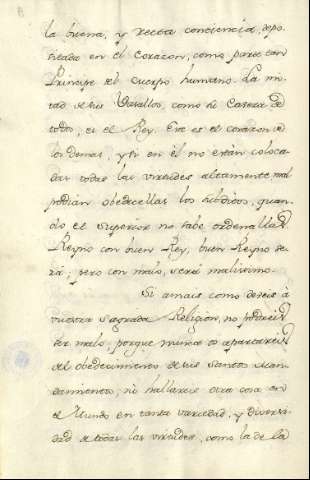 la buena, y recta conciencia, depo
sitada en el Corazon, como parte tan
Principe del cuerpo humano. La mi
tad de sus Vasallos, como la Cabeza de
todos, es el Rey. Este es el corazon de
los demas, y si en èl no estàn coloca
das todas las virtudes altamente mal
podràn obedecellas los subditos, quan
do el Superior no sabe ordenallas
Reyno con buen Rey, buen Reyno se
rà; pero con malo, serà malisimo.
Si amais como deveis à
vuestra Sagrada Religion, no podreis
ser malo; porque nunca os apartareis
del obedecimiento de sus Santos Man
damientos; ni hallareis otra cosa en
el Mundo en tanta variedad, y diversi
dad de todas las virtudes, como la de la